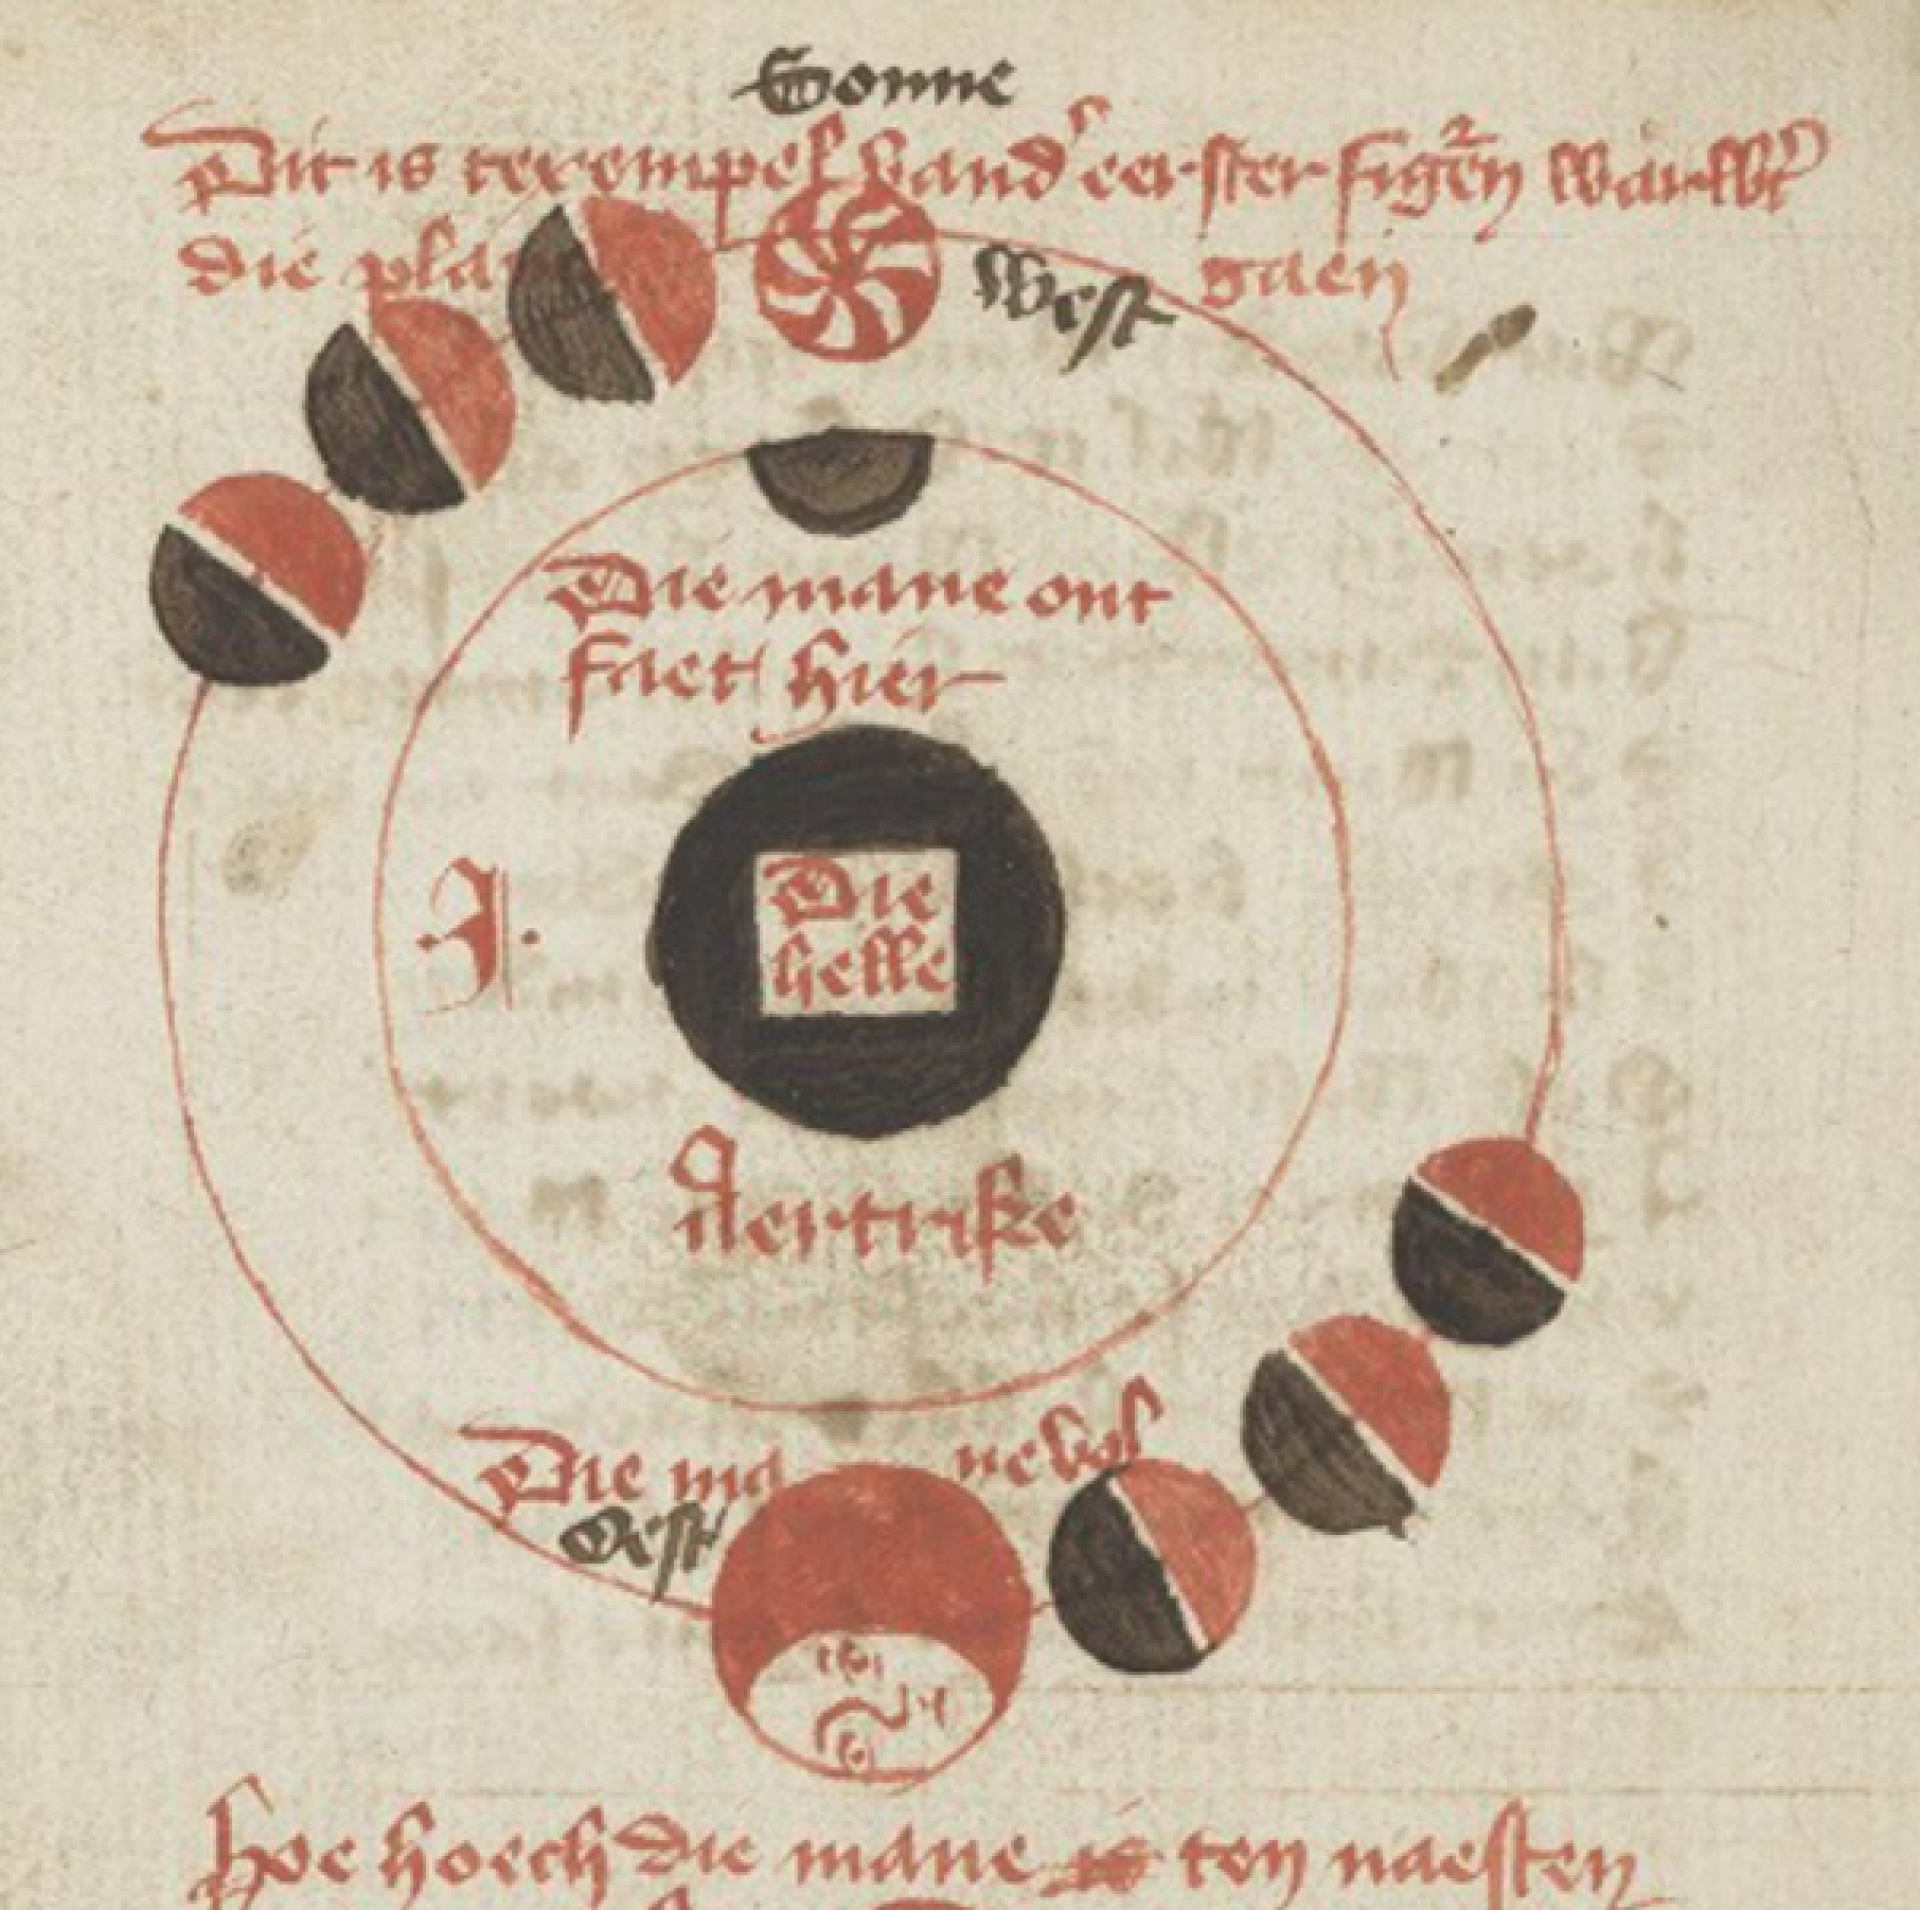 Sonne
Dit is texempel vand' eerster figuren waer wt
die pla gaen
West
Die mane ont
faet hier
.J.
Die
helle
Aertrike
Die ma ne vol
Oest
hoe hoech die mane is ten naesten